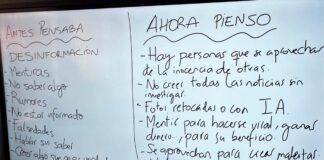 ANTES PENSABA
DESINFORMACIÓN
- Mentiras
- No saber algo
- Rumores
- No estar informado
- Falsedades
- Hablar sin saber
- Creer algo que
AHORA PIENSO
- Hay personas que se aprovechan
de la inocencia de otras.
- No creer todas las noticias sin
investigar
- Fotos retocadas o con IA.
- Mentir para hacerse viral, ganar
dinero, para su beneficio.
- Se aprovechan para crear malestar